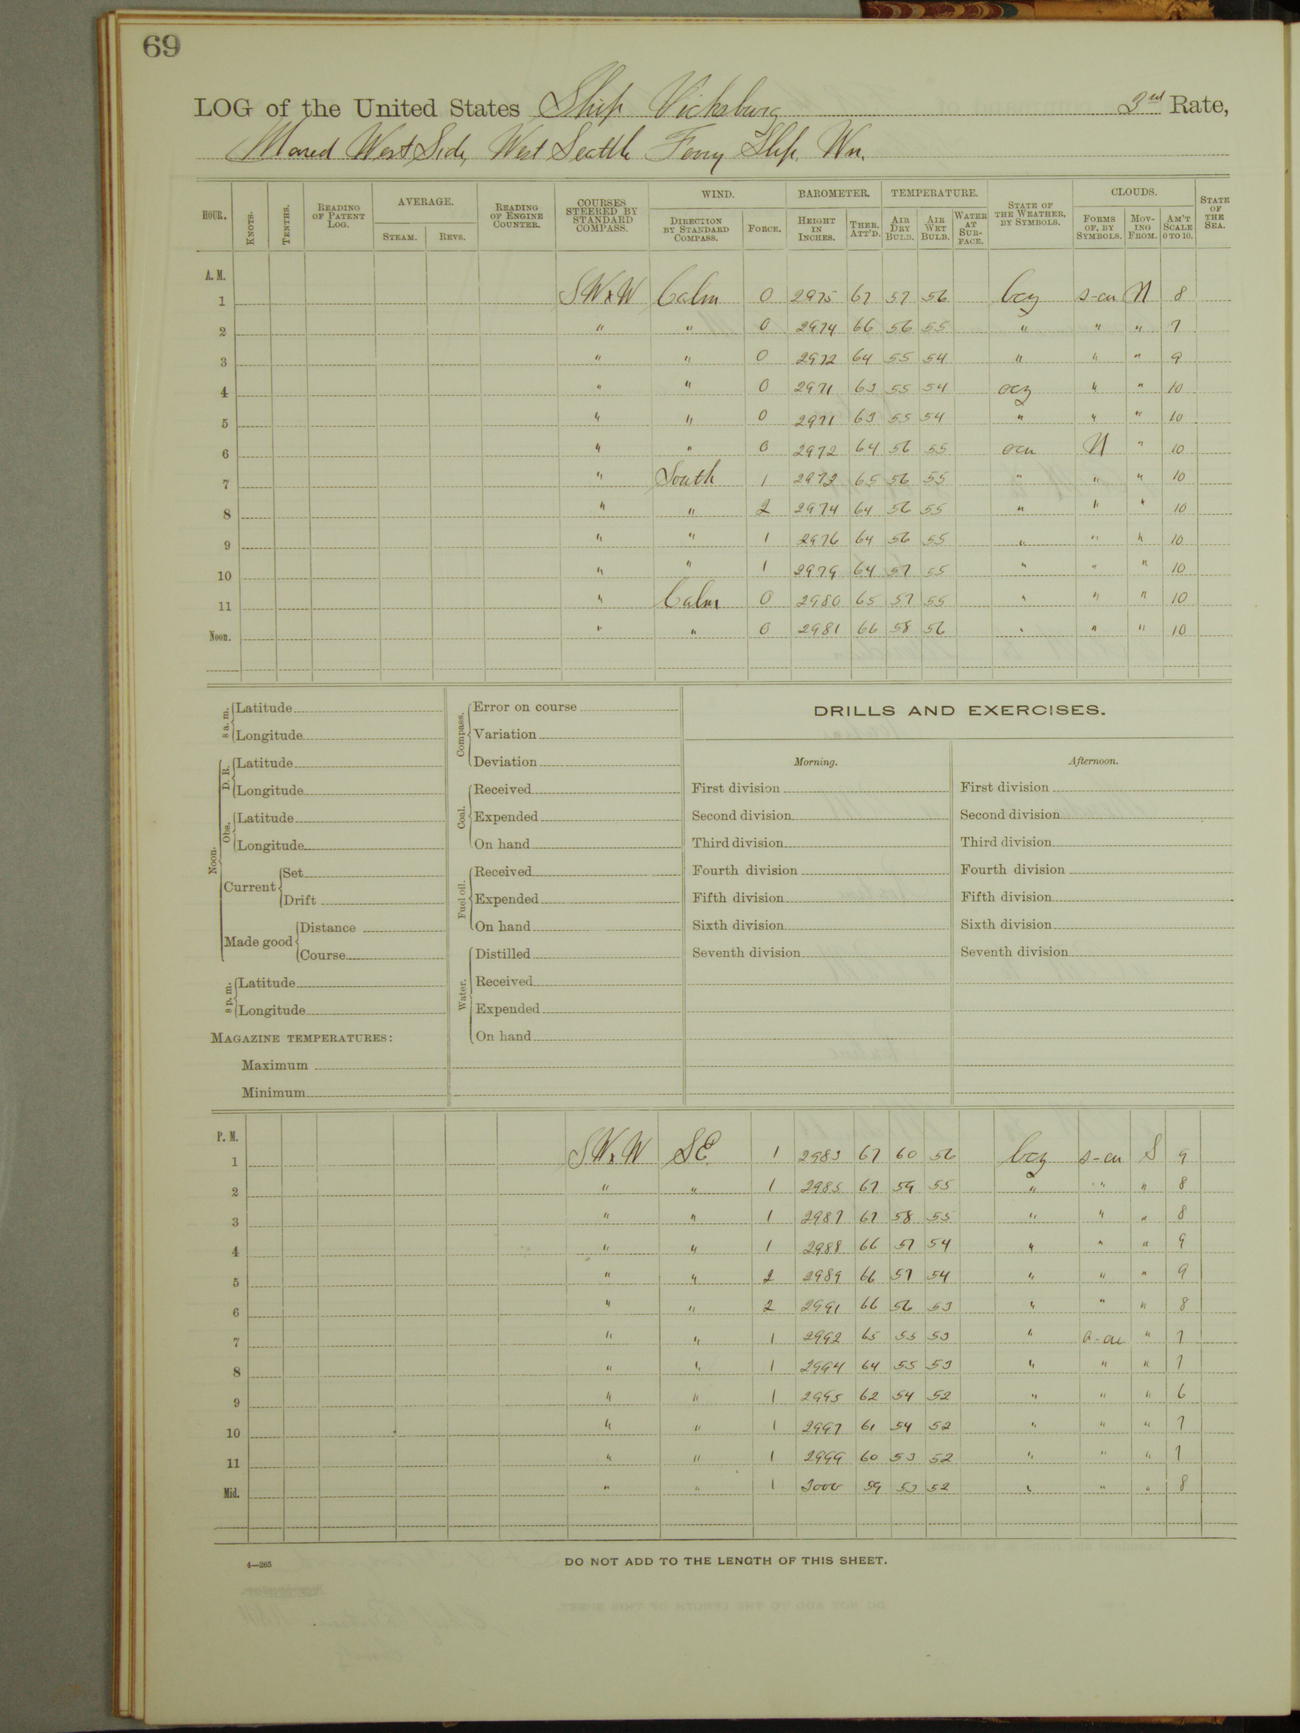 69
LOG of the United States Ship Vicksburg 3rd Rate,
Moored West Side, West Seattle Ferry Slip, Wn.
HOUR. KNOTS. TENTHS. READING OF PATENT LOG. AVERAGE. STEAM. REVS. READING OF ENGINE COUNTER. COURSES STEERED BY STANDARD COMPASS. WIND. DIRECTION BY STANDARD COMPASS. FORCE. BAROMETER. HEIGHT IN INCHES. THER. ATT'D. TEMPERATURE. AIR DRY BULB. AIR WET BULB. WATER AT SURFACE. STATE OF THE WEATHER, BY SYMBOLS. CLOUDS. FORMS OF, BY SYMBOLS. MOVING FROM. AM'T SCALE 0 TO 10. STATE OF THE SEA.
A. M.
1 SWxW Calm 0 2975 67 57 56 bcz s-cu N 8
2 " " 0 2974 66 56 55 " " " 7
3 " " 0 2972 64 55 54 " " " 9
4 " " 0 2971 63 55 54 ocz " " 10
5 " " 0 2971 63 55 54 " " " 10
6 " " 0 2972 64 56 55 N " 10
7 " South 1 2973 65 56 55 " " " 10
8 " " 2 2974 64 56 55 " " " 10
9 " " 1 2976 64 56 55 " " " 10
10 " " 1 2979 64 57 55 " " " 10
11 " Calm 0 2980 65 57 55 " " " 10
Noon. " " 0 2981 66 58 56 " " " 10
8 a. m. Latitude
Longitude
Noon. D. R. Latitude
Longitude
Obs. Latitude
Longitude
Current Set
Drift
Made good Distance
Course
8 p. m. Latitude
Longitude
MAGAZINE TEMPERATURES:
Maximum
Minimum
Compass. Error on course
Variation
Deviation
Coal. Received
Expended
On hand
Fuel oil. Received
Expended
On hand
Water. Distilled
Received
Expended
On hand
DRILLS AND EXERCISES.
Morning.
First division
Second division
Third division
Fourth division
Fifth division
Sixth division
Seventh division
Afternoon.
First division
Second division
Third division
Fourth division
Fifth division
Sixth division
Seventh division
P. M.
1 SWxW SE 1 2983 67 60 56 bcz s-cu S 9
2 " " 1 2985 67 59 55 " " " 8
3 " " 1 2987 67 58 55 " " " 8
4 " " 1 2988 66 57 54 " " " 9
5 " " 2 2989 66 57 54 " " " 9
6 " " 2 2991 66 56 53 " " " 8
7 " " 1 2992 65 55 53 " a-cu " 7
8 " " 1 2994 64 55 53 " " " 7
9 " " 1 2995 62 54 52 " " " 6
10 " " 1 2997 61 54 52 " " " 7
11 " " 1 2999 60 53 52 " " " 7
Mid. " " 1 3000 59 53 52 " " " 8
4—265
DO NOT ADD TO THE LENGTH OF THIS SHEET.